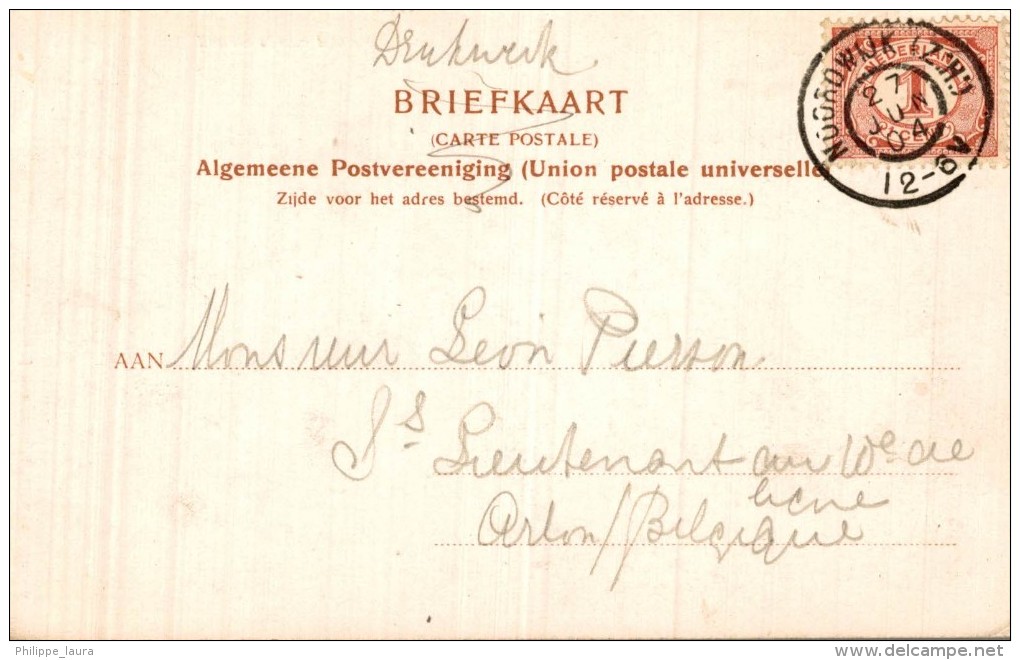 Drukwerk
BRIEFKAART
(CARTE POSTALE)
Algemeene Postvereeniging (Union postale universelle
Zijde voor het adres bestemd. (Côté réservé à l'adresse.)
NEDERLAND
1
NOORDWIJK (Z.H.)
27
JUN
04
12-6V
AAN Monsieur Léon Pierson
Ss Lieutenant au 10e de
ligne
Arlon/Belgique
Philippe_laura
www.delcampe.net